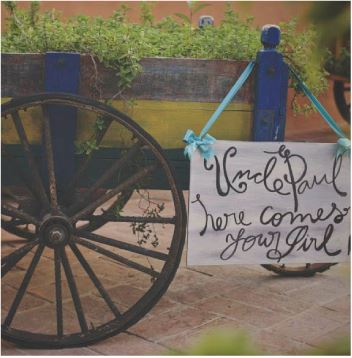 Uncle Paul
here comes
your Girl!